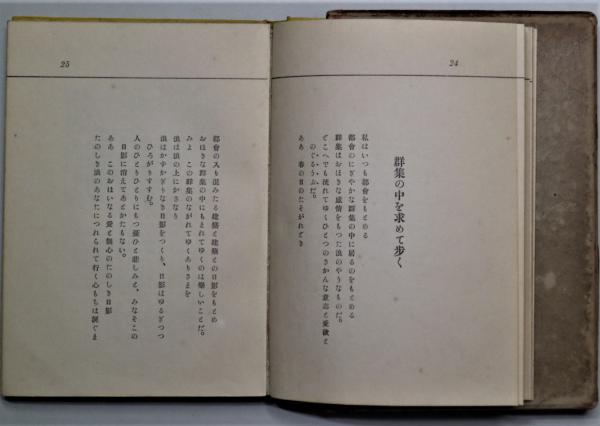 24
群集の中を求めて歩く
私はいつも都會をもとめる
都會のにぎやかな群集の中に居るのをもとめる
群集はおほきな感情をもつた浪のやうなものだ。
どこへでも流れてゆくひとつのさかんな意志と愛欲と
のぐるうぷだ。
ああ 春の日のたそがれどき
25
都會の入り混みたる建築と建築との日影をもとめ
おほきな群集の中にもまれてゆくのは樂しいことだ。
みよ この群集のながれてゆくありさまを
浪は浪の上にかさなり
浪はかずかぎりなき日影をつくり、日影はゆるぎつつ
ひろがりすすむ。
人のひとりひとりにもつ憂ひと悲しみと、みなそこの
日影に消えてあとかたもない。
ああ このおほいなる愛と無心のたのしき日影
たのしき浪のあなたにつれられて行く心もちは涙ぐま